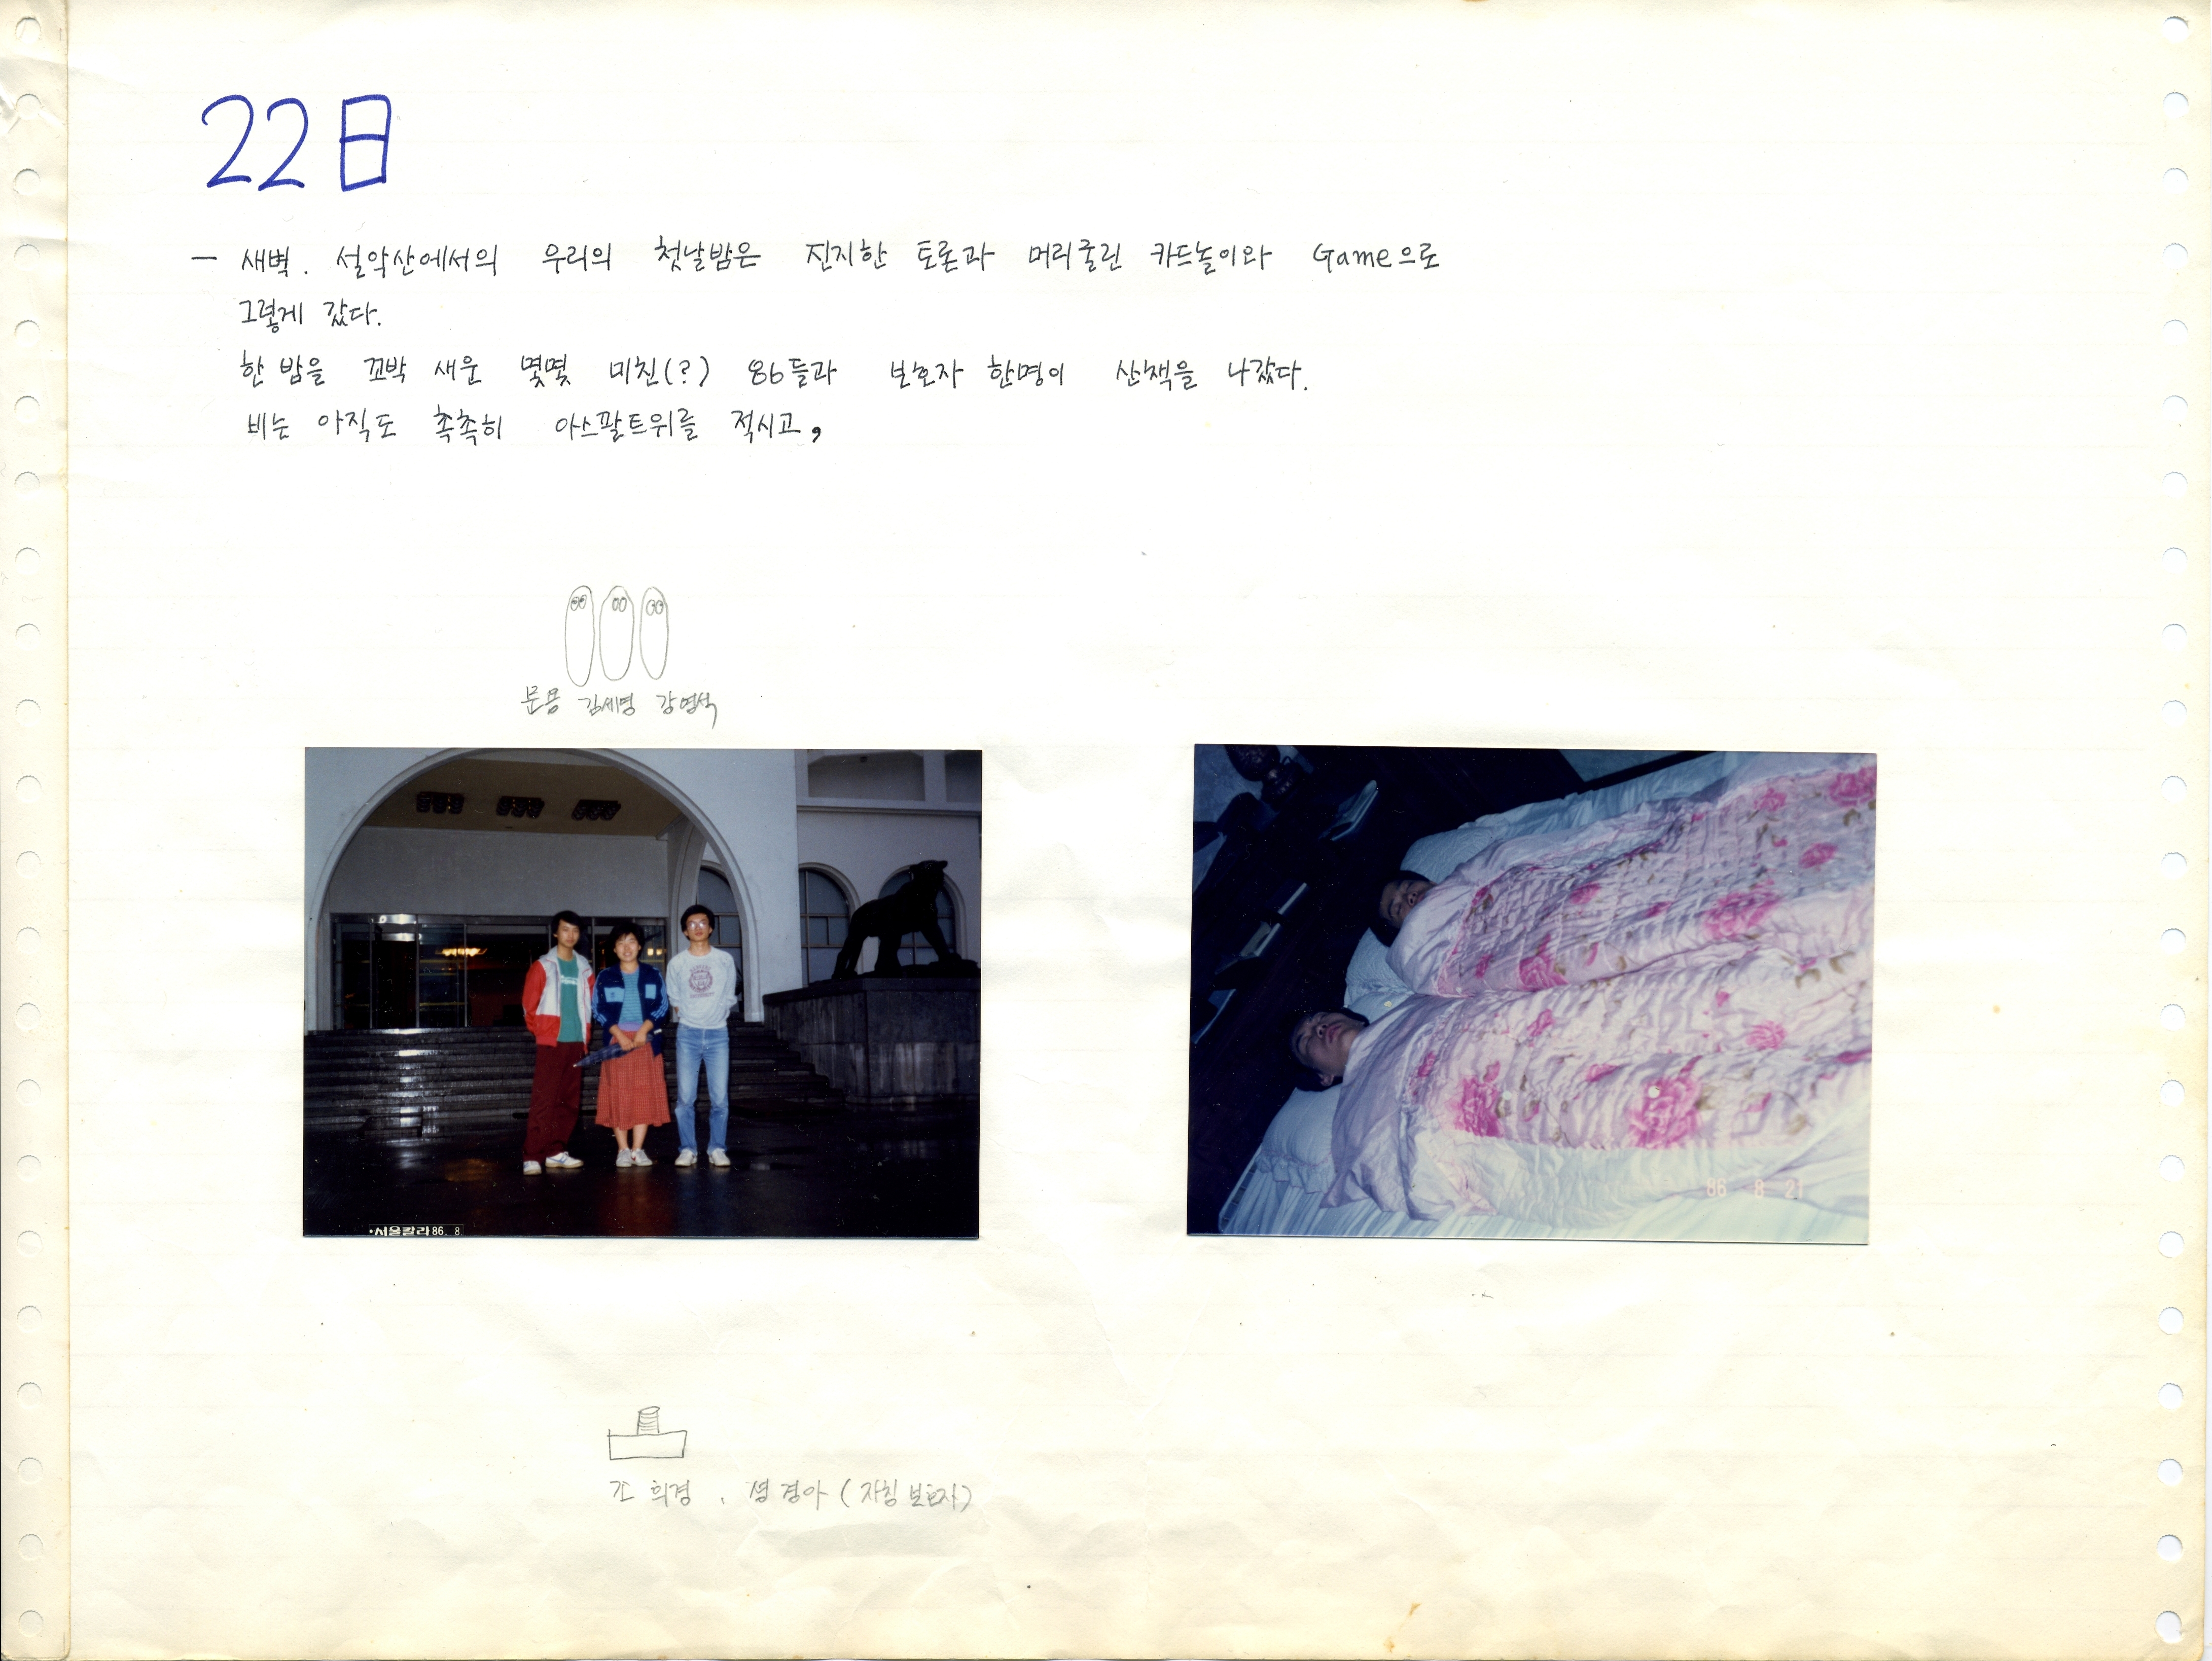 22日
— 새벽. 설악산에서의 우리의 첫날밤은 진지한 토론과 머리굴린 카드놀이와 Game으로
그렇게 갔다.
한 밤을 꼬박 새운 몇몇 미친(?) 86들과 보호자 한명이 산책을 나갔다.
비는 아직도 촉촉히 아스팔트위를 적시고,
문용 김세명 강영석
•서울칼라 86. 8
86 8 21
조 희경, 성경아 (자칭 보호자)